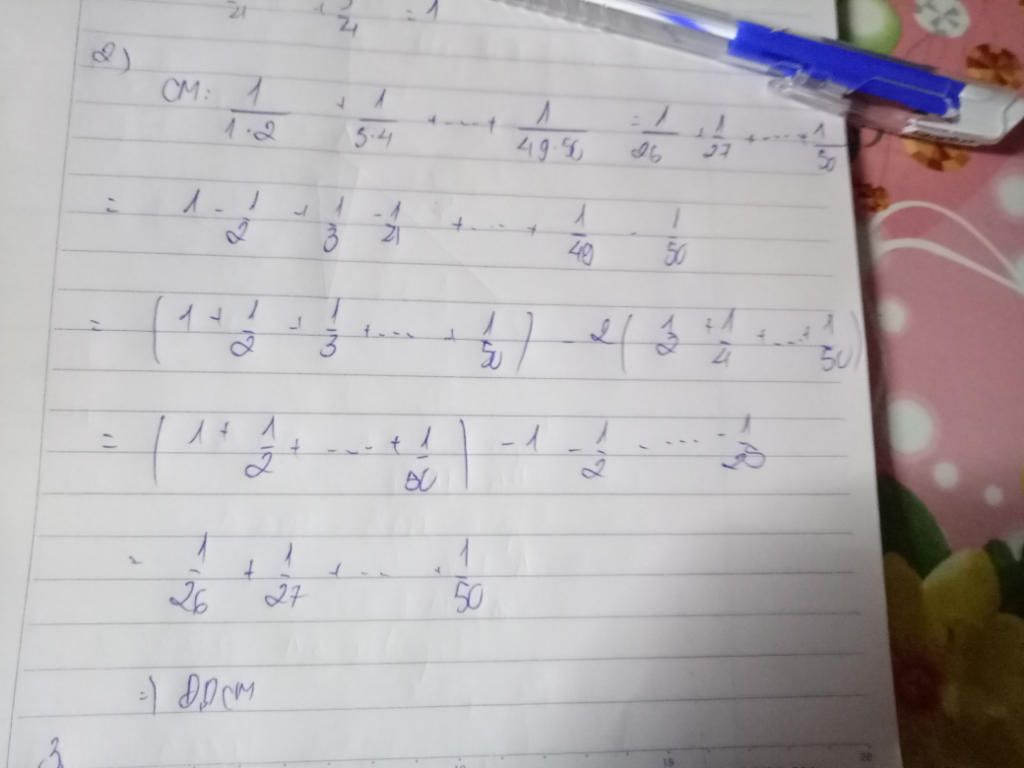 + = 1
2)
CM: 1/1·2 + 1/3·4 + ---- + 1/49·50 = 1/26 + 1/27 + ---- + 1/50
= 1 - 1/2 + 1/3 - 1/4 + --- + 1/49 - 1/50
= (1 + 1/2 + 1/3 + ---- + 1/50) - 2(1/2 + 1/4 + --- + 1/50)
= (1 + 1/2 + ---- + 1/50) - 1 - 1/2 - ---- - 1/25
= 1/26 + 1/27 + --- + 1/50
=) ĐPCM
3